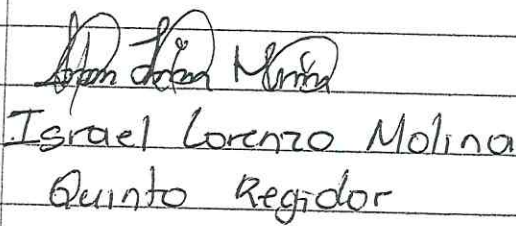 Israel Lorenzo Molina
Quinto Regidor